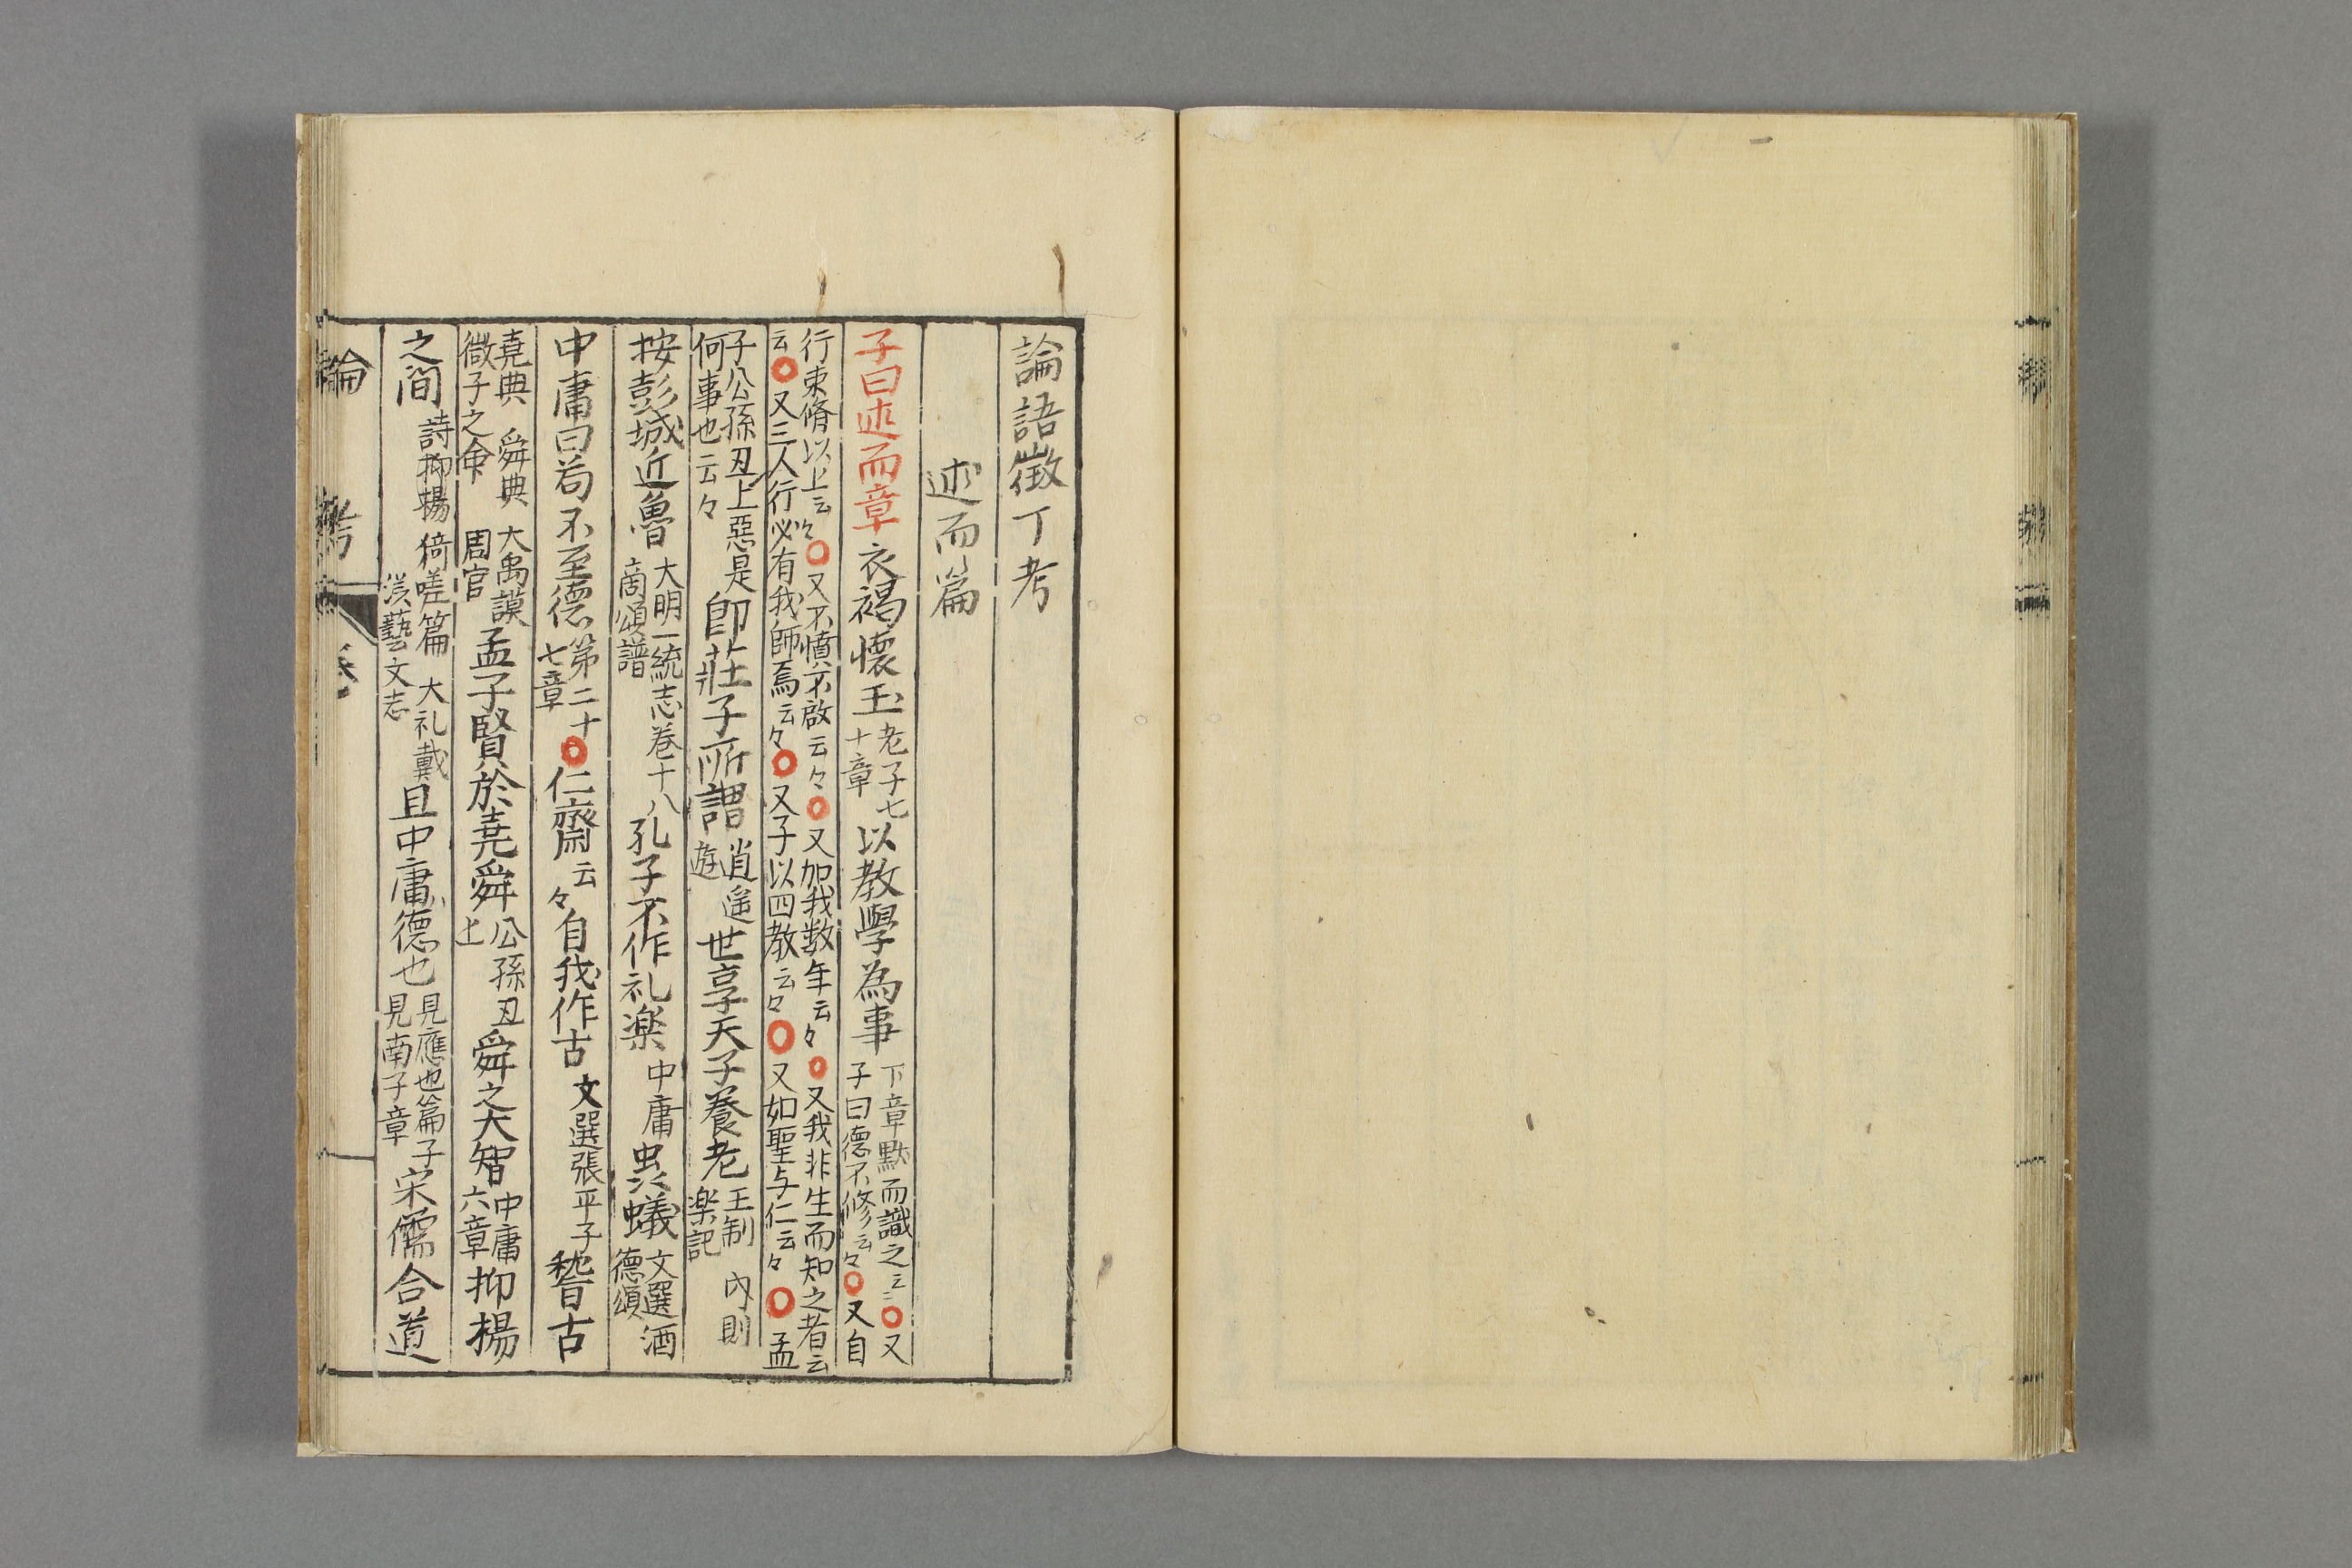 論語徵丁考
述而篇
子曰述而章衣褐懷玉老子七十章以教學為事下章黙而識之云〻〇又子曰德不修云々〇又自
行束脩以上云々〇又不憤不啟云々〇又加我数年云々〇又我非生而知之者云
云〇又三人行必有我師焉云々〇又子以四教云々〇又如聖与仁云々〇孟
子公孫丑上惡是何事也云々即莊子所謂逍遥遊世享天子養老王制 內則楽記
按彭城近魯大明一統志巻十八商頌譜孔子不作礼楽中庸虫蟻文選酒德頌
中庸曰苟不至德第二十七章〇仁齋云々自我作古文選張平子稽古
堯典 舜典 大禹謨微子之命 周官孟子賢於堯舜公孫丑上舜之大智中庸六章抑楊
之間詩抑楊 猗嗟篇 大礼戴漢藝文志且中庸德也見應也篇子見南子章宋儒合道
論 考 巻